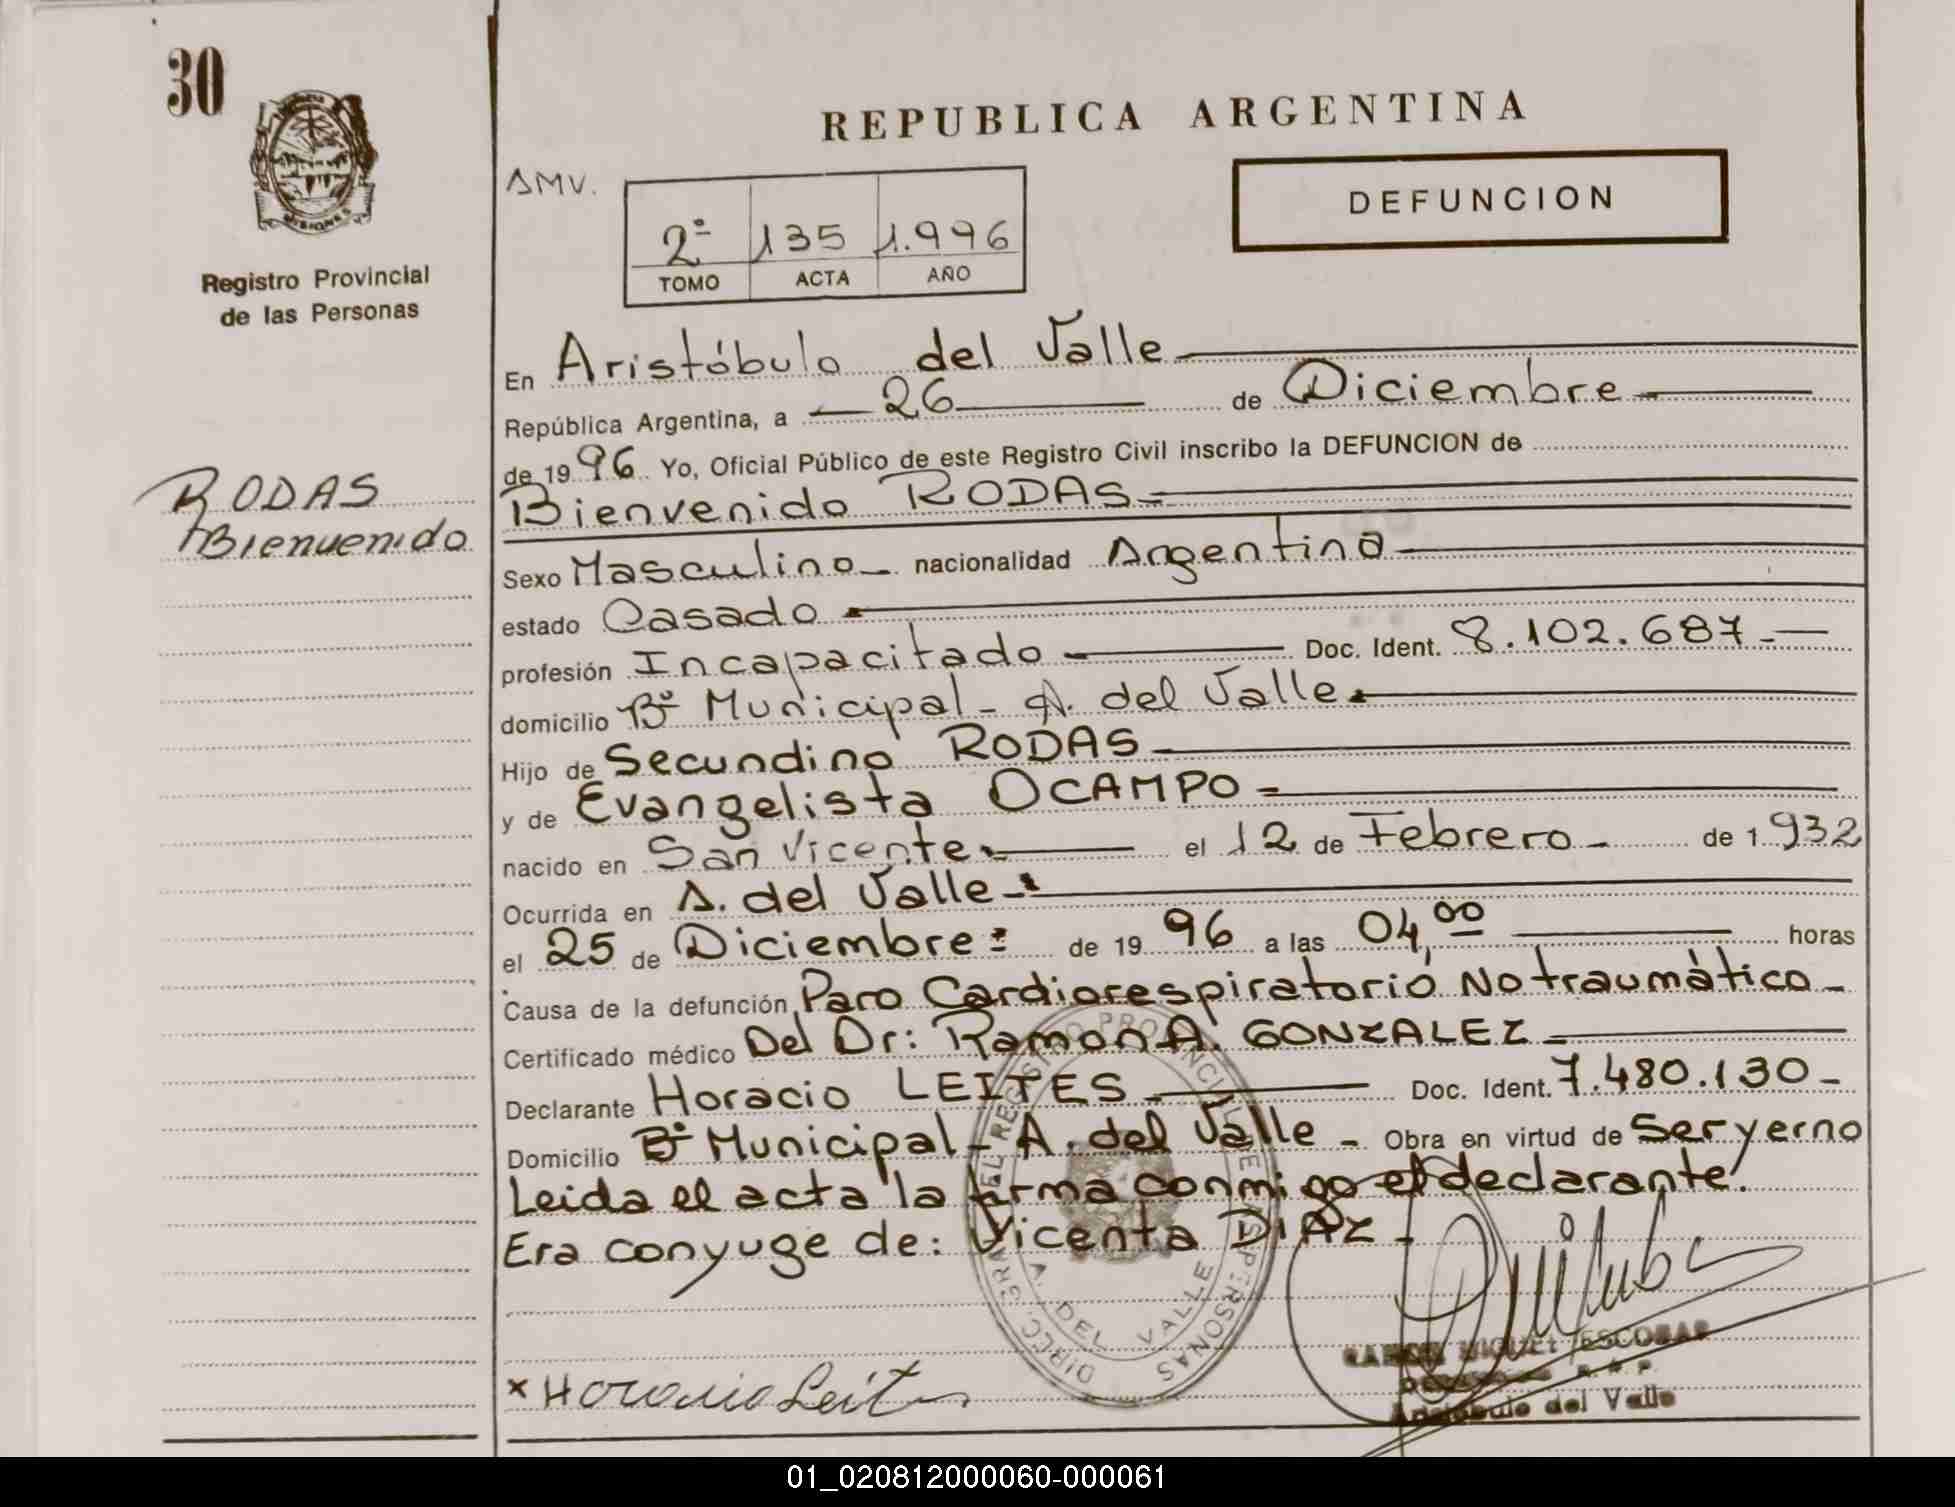 30
MISIONES
Registro Provincial
de las Personas
RODAS
Bienvenido
REPUBLICA ARGENTINA
AMV.
2º 135 1.996
TOMO ACTA AÑO
DEFUNCION
En Aristóbulo del Valle
República Argentina, a 26 de Diciembre
de 1996 Yo, Oficial Público de este Registro Civil inscribo la DEFUNCION de
Bienvenido RODAS
Sexo Masculino nacionalidad Argentina
estado Casado
profesión Incapacitado Doc. Ident. 8.102.687
domicilio Bº Municipal - A. del Valle
Hijo de Secundino RODAS
y de Evangelista OCAMPO
nacido en San Vicente el 12 de Febrero de 1.932
Ocurrida en A. del Valle
el 25 de Diciembre de 1996 a las 04,00 horas
Causa de la defunción Paro Cardiorespiratorio No traumático
Certificado médico Del Dr: Ramon A. GONZALEZ
Declarante Horacio LEITES Doc. Ident. 7.480.130
Domicilio Bº Municipal - A. del Valle - Obra en virtud de Ser yerno
Leida el acta la firma conmigo el declarante.
Era conyuge de: Vicenta DIAZ
DIREC. GRAL. DEL REGISTRO PROVINCIAL DE LAS PERSONAS
A. DEL VALLE
x Horacio Leites
MIGUEL ESCOBAR
Aristóbulo del Valle
01_020812000060-000061